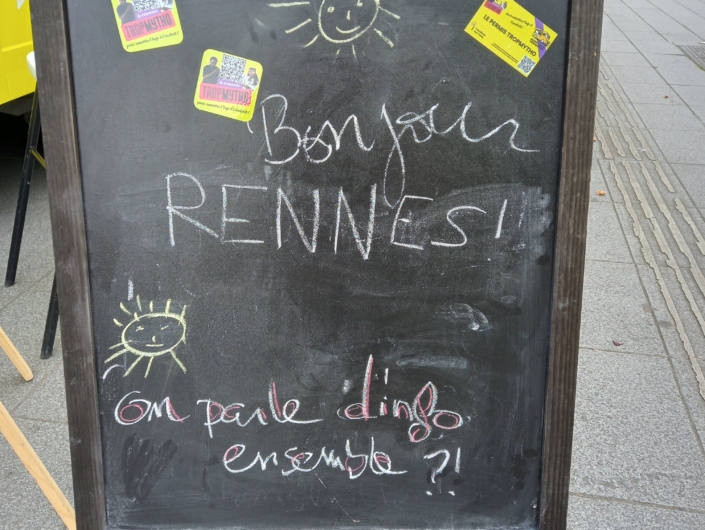 TROPMYTHO
LE PERMIS TROPMYTHO
TROPMYTHO
Bonjour
RENNES!
On parle d'info
ensemble ?!